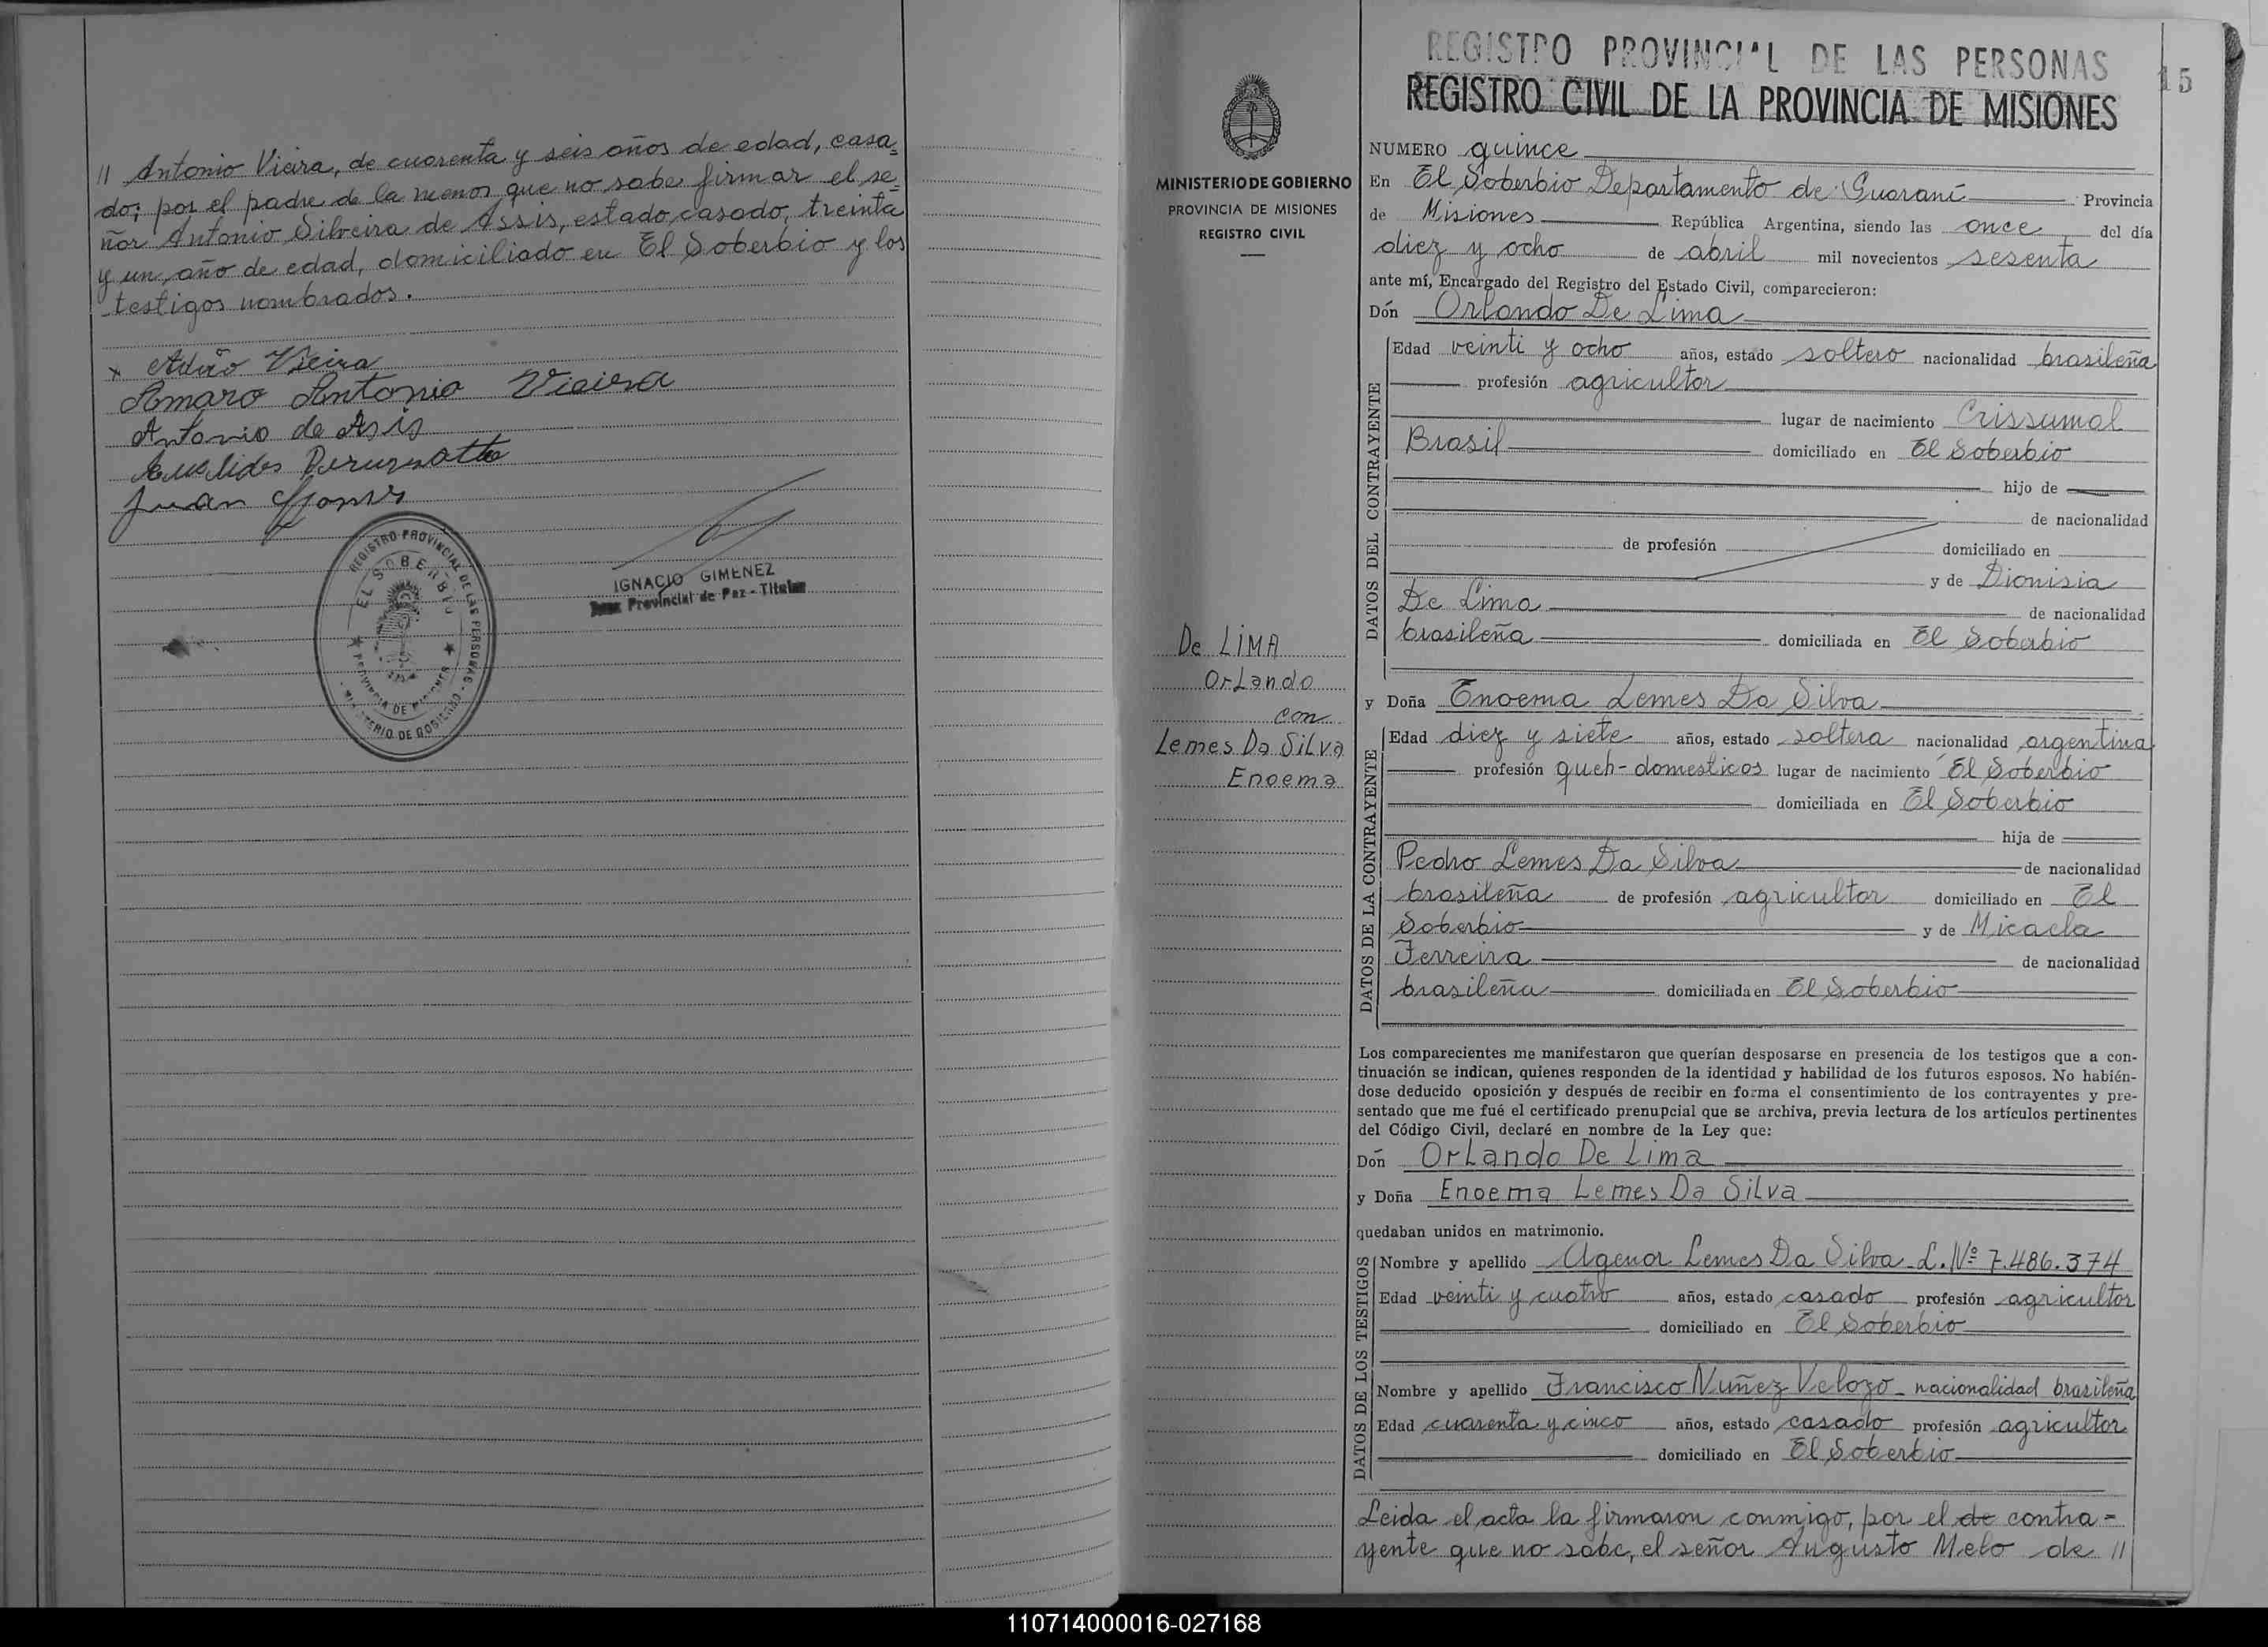 // Antonio Vieira, de cuarenta y seis años de edad, casa=
do; por el padre de la menor que no sabe firmar el se=
ñor Antonio Silveira de Assis, estado casado, treinta
y un año de edad, domiciliado en El Soberbio y los
testigos nombrados.
x Adão Vieira
Amaro Antonio Vieira
Antonio de Asis
Euclides
Juan
REGISTRO PROVINCIAL DE LAS PERSONAS
EL SOBERBIO
PROVINCIA DE MISIONES
MINISTERIO DE GOBIERNO
IGNACIO GIMENEZ
Juez Provincial de Paz - Titular
MINISTERIO DE GOBIERNO
PROVINCIA DE MISIONES
REGISTRO CIVIL
De LiMA
OrLando
con
Lemes Da SiLva
Enoema
REGISTRO PROVINCIAL DE LAS PERSONAS
15
REGISTRO CIVIL DE LA PROVINCIA DE MISIONES
NUMERO quince
En El Soberbio Departamento de Guaraní Provincia
de Misiones República Argentina, siendo las once del día
diez y ocho de abril mil novecientos sesenta
ante mí, Encargado del Registro del Estado Civil, comparecieron:
Dón Orlando De Lima
DATOS DEL CONTRAYENTE
Edad veinti y ocho años, estado soltero nacionalidad brasileña
profesión agricultor
lugar de nacimiento Crissumal
Brasil domiciliado en El Soberbio
hijo de
de nacionalidad
de profesión domiciliado en
y de Dionisia
De Lima de nacionalidad
brasileña domiciliada en El Soberbio
y Doña Enoema Lemes Da Silva
DATOS DE LA CONTRAYENTE
Edad diez y siete años, estado soltera nacionalidad argentina
profesión queh-domesticos lugar de nacimiento El Soberbio
domiciliada en El Soberbio
hija de
Pedro Lemes Da Silva de nacionalidad
brasileña de profesión agricultor domiciliado en El
Soberbio y de Micaela
Ferreira de nacionalidad
brasileña domiciliada en El Soberbio
Los comparecientes me manifestaron que querían desposarse en presencia de los testigos que a con-
tinuación se indican, quienes responden de la identidad y habilidad de los futuros esposos. No habién-
dose deducido oposición y después de recibir en forma el consentimiento de los contrayentes y pre-
sentado que me fué el certificado prenupcial que se archiva, previa lectura de los artículos pertinentes
del Código Civil, declaré en nombre de la Ley que:
Dón OrLando De Lima
y Doña Enoema Lemes Da SiLva
quedaban unidos en matrimonio.
DATOS DE LOS TESTIGOS
Nombre y apellido Agenor Lemes Da Silva L. Nº 7.486.374
Edad veinti y cuatro años, estado casado profesión agricultor
domiciliado en El Soberbio
Nombre y apellido Francisco Nuñez Velozo - nacionalidad brasileña
Edad cuarenta y cinco años, estado casado profesión agricultor
domiciliado en El Soberbio
Leida el acta la firmaron conmigo, por el de contra-
yente que no sabe, el señor Augusto Melo de //
110714000016-027168